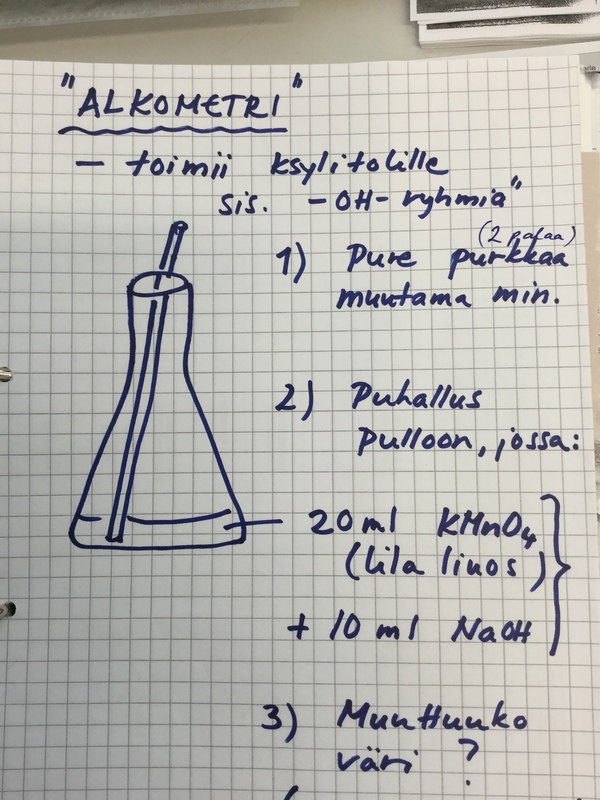 "ALKOMETRI"
– toimii ksylitolille
sis. –OH-ryhmiä"
1) Pure purkkaa (2 palaa)
muutama min.
2) Puhallus
pulloon, jossa:
20 ml KMnO4
(lila liuos)
+ 10 ml NaOH
3) Muuttuuko
väri ?